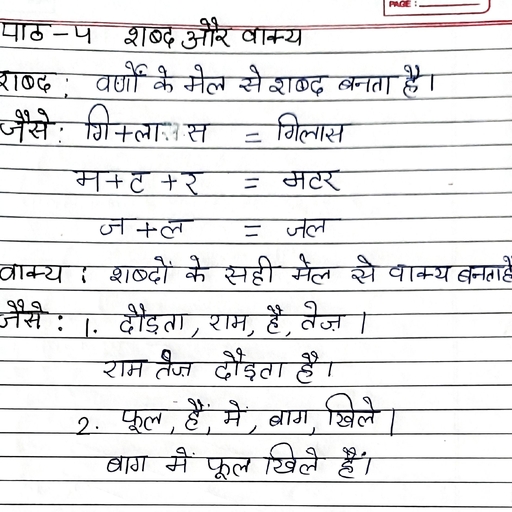 PAGE :
पाठ - ५ शब्द और वाक्य
शब्द : वर्णों के मेल से शब्द बनता है।
जैसे : गि+ला+स = गिलास
म+ट+र = मटर
ज+ल = जल
वाक्य : शब्दों के सही मेल से वाक्य बनता है
जैसे : 1. दौड़ता, राम, है, तेज़ ।
राम तेज़ दौड़ता है।
2. फूल, हैं, में, बाग, खिले ।
बाग में फूल खिले हैं।